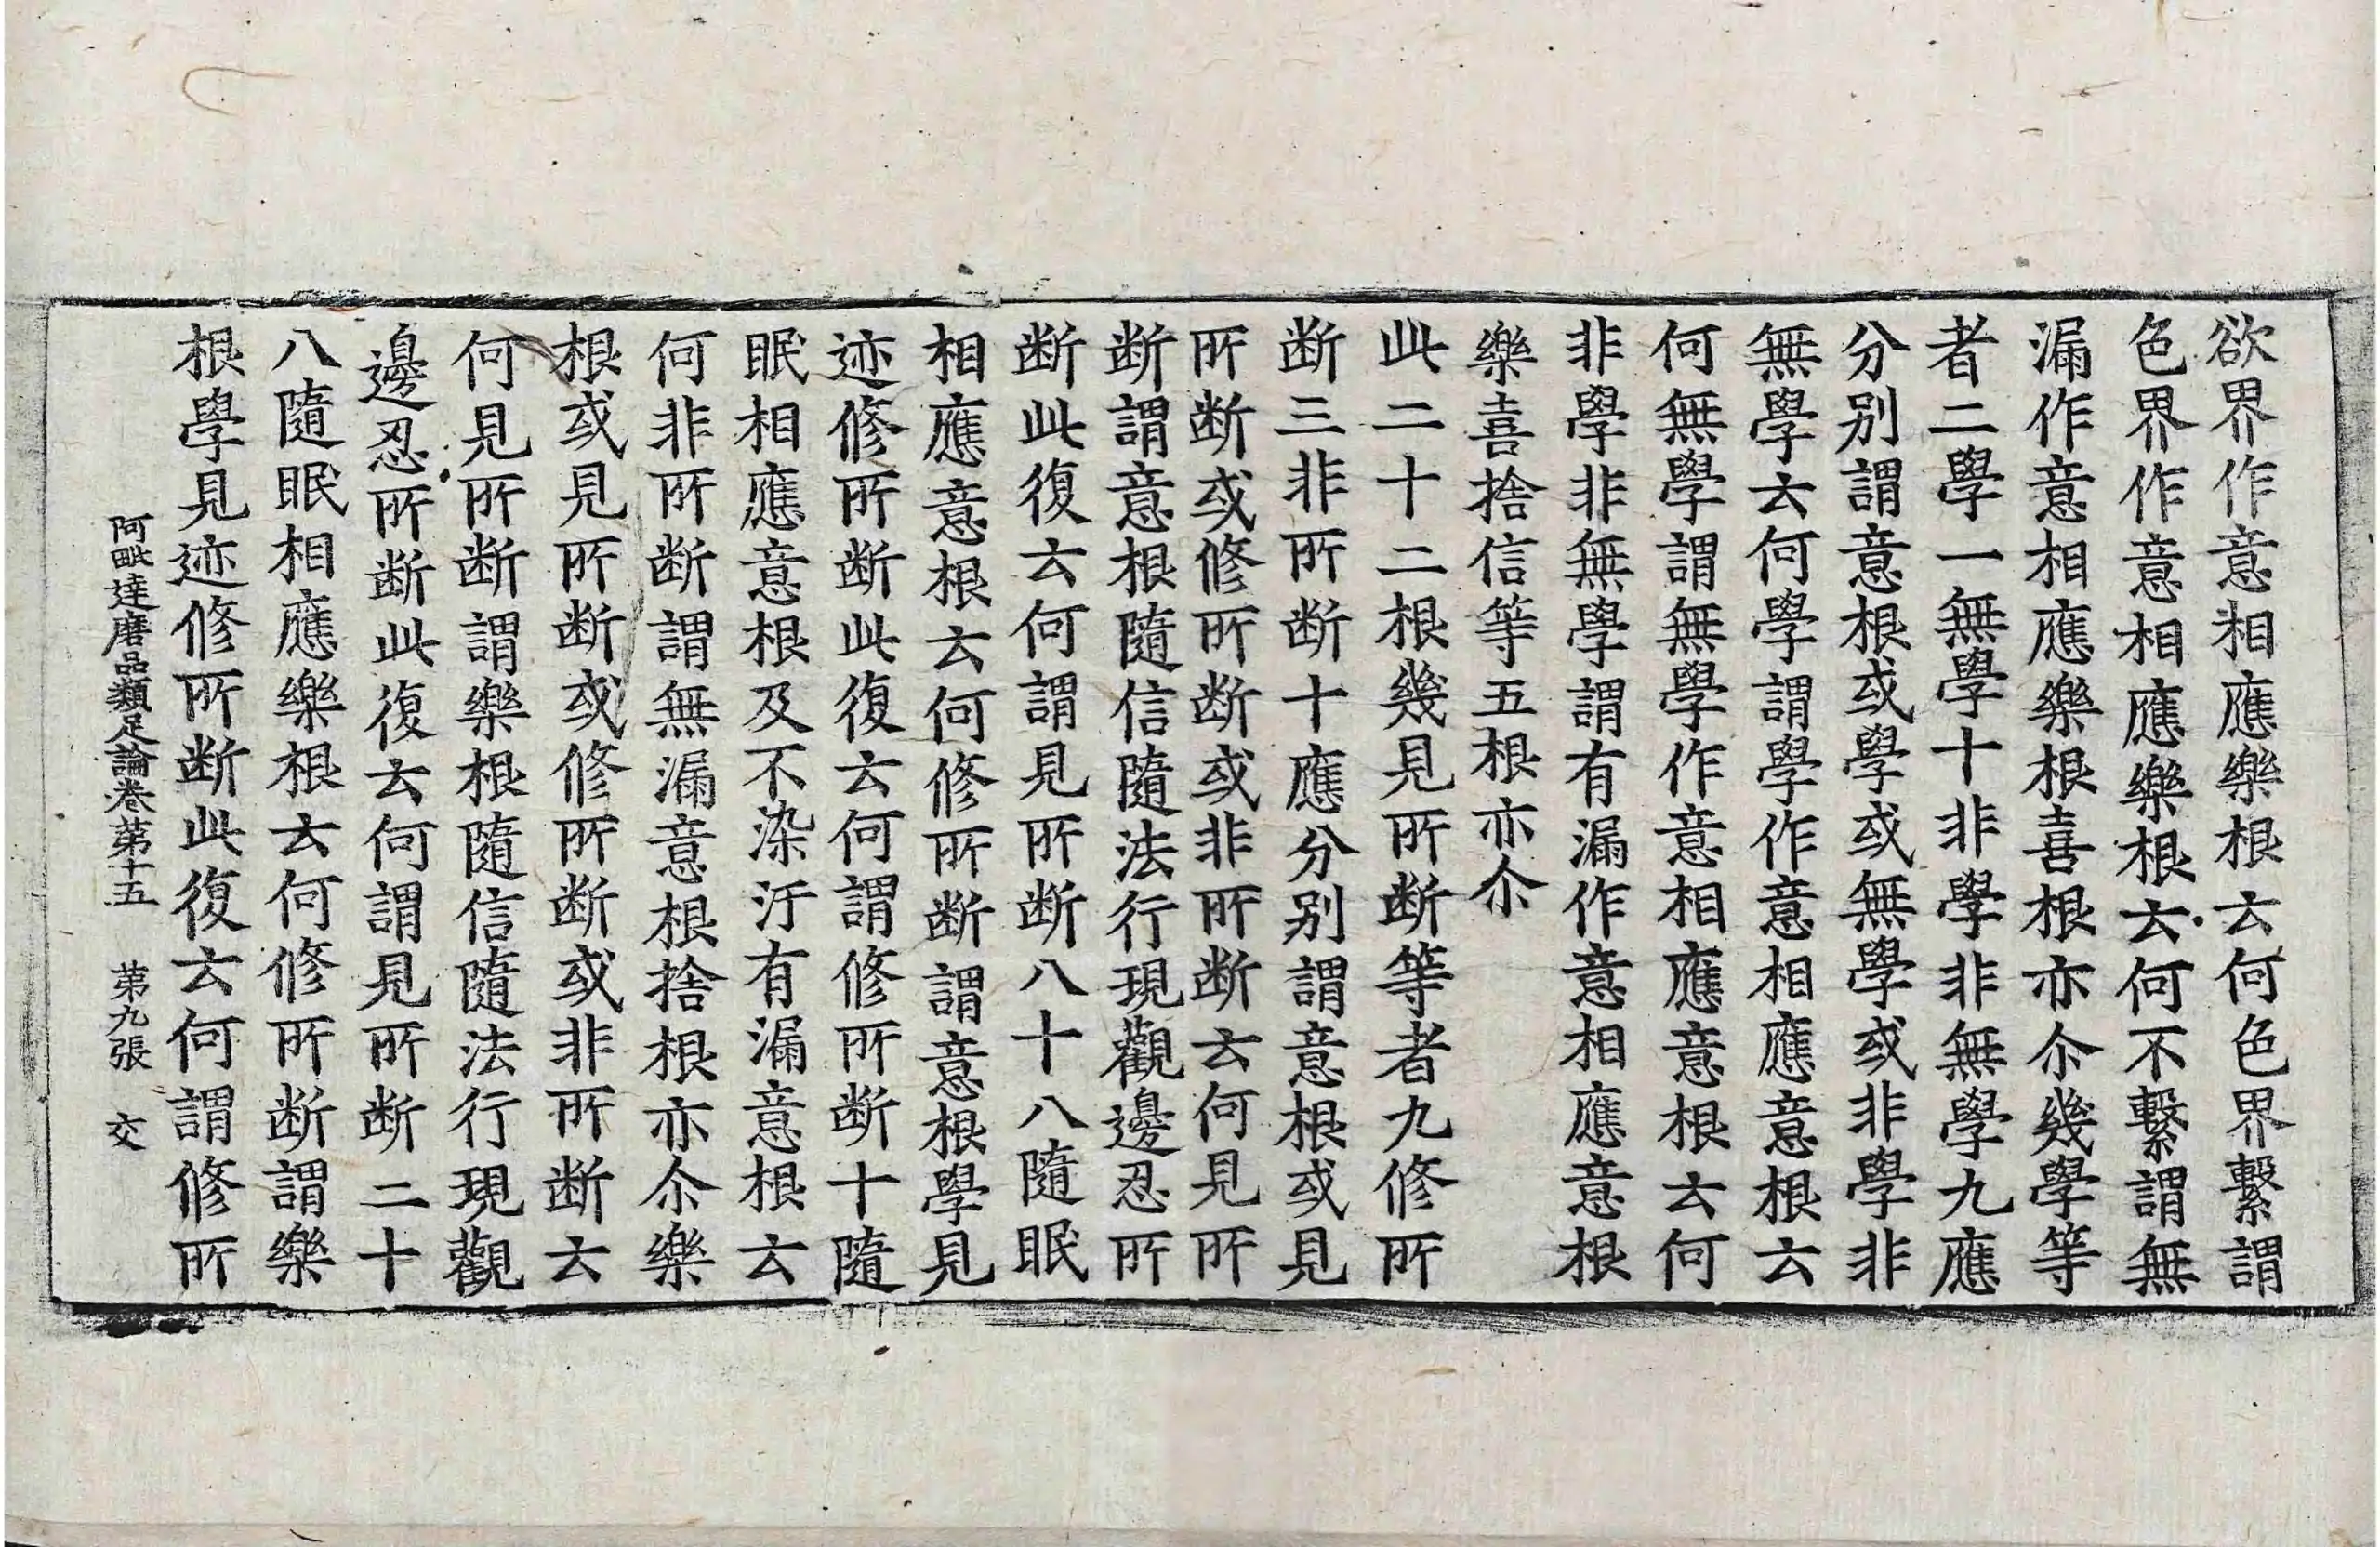 欲界作意相應樂根云何色界繫謂
色界作意相應樂根云何不繫謂無
漏作意相應樂根喜根亦尒幾學等
者二學一無學十非學非無學九應
分別謂意根或學或無學或非學非
無學云何學謂學作意相應意根云
何無學謂無學作意相應意根云何
非學非無學謂有漏作意相應意根
樂喜捨信等五根亦尒
此二十二根幾見所断等者九修所
断三非所断十應分别謂意根或見
所断或修所断或非所断云何見所
断謂意根隨信隨法行現觀邊忍所
断此復云何謂見所断八十八隨眠
相應意根云何修所断謂意根學見
迹修所断此復云何謂修所断十隨
眠相應意根及不染汙有漏意根云
何非所断謂無漏意根捨根亦尒樂
根或見所断或修所断或非所断云
何見所断謂樂根隨信隨法行現觀
邊忍所断此復云何謂見所断二十
八隨眠相應樂根云何修所断謂樂
根學見迹修所断此復云何謂修所
阿毗達磨品類足論卷第十五 第九張 交